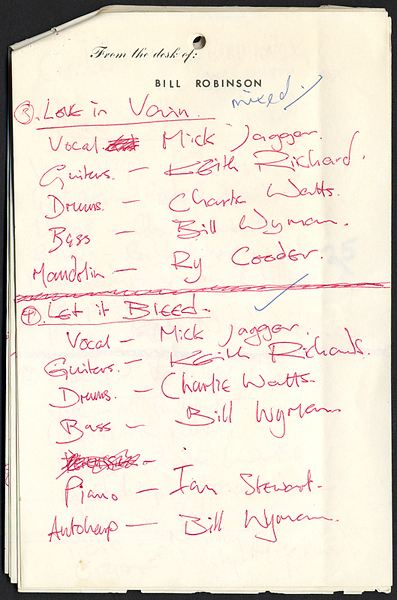 From the desk of:
BILL ROBINSON
mixed ✓
③. Love in Vain.
Vocal - Mick Jagger.
Guitars. - Keith Richard.
Drums. - Charlie Watts.
Bass - Bill Wyman.
Mandolin - Ry Cooder.
④. Let it Bleed. ✓
Vocal - Mick Jagger.
Guitars. - Keith Richards.
Drums. - Charlie Watts.
Bass - Bill Wyman
Piano - Ian Stewart.
Autoharp - Bill Wyman.